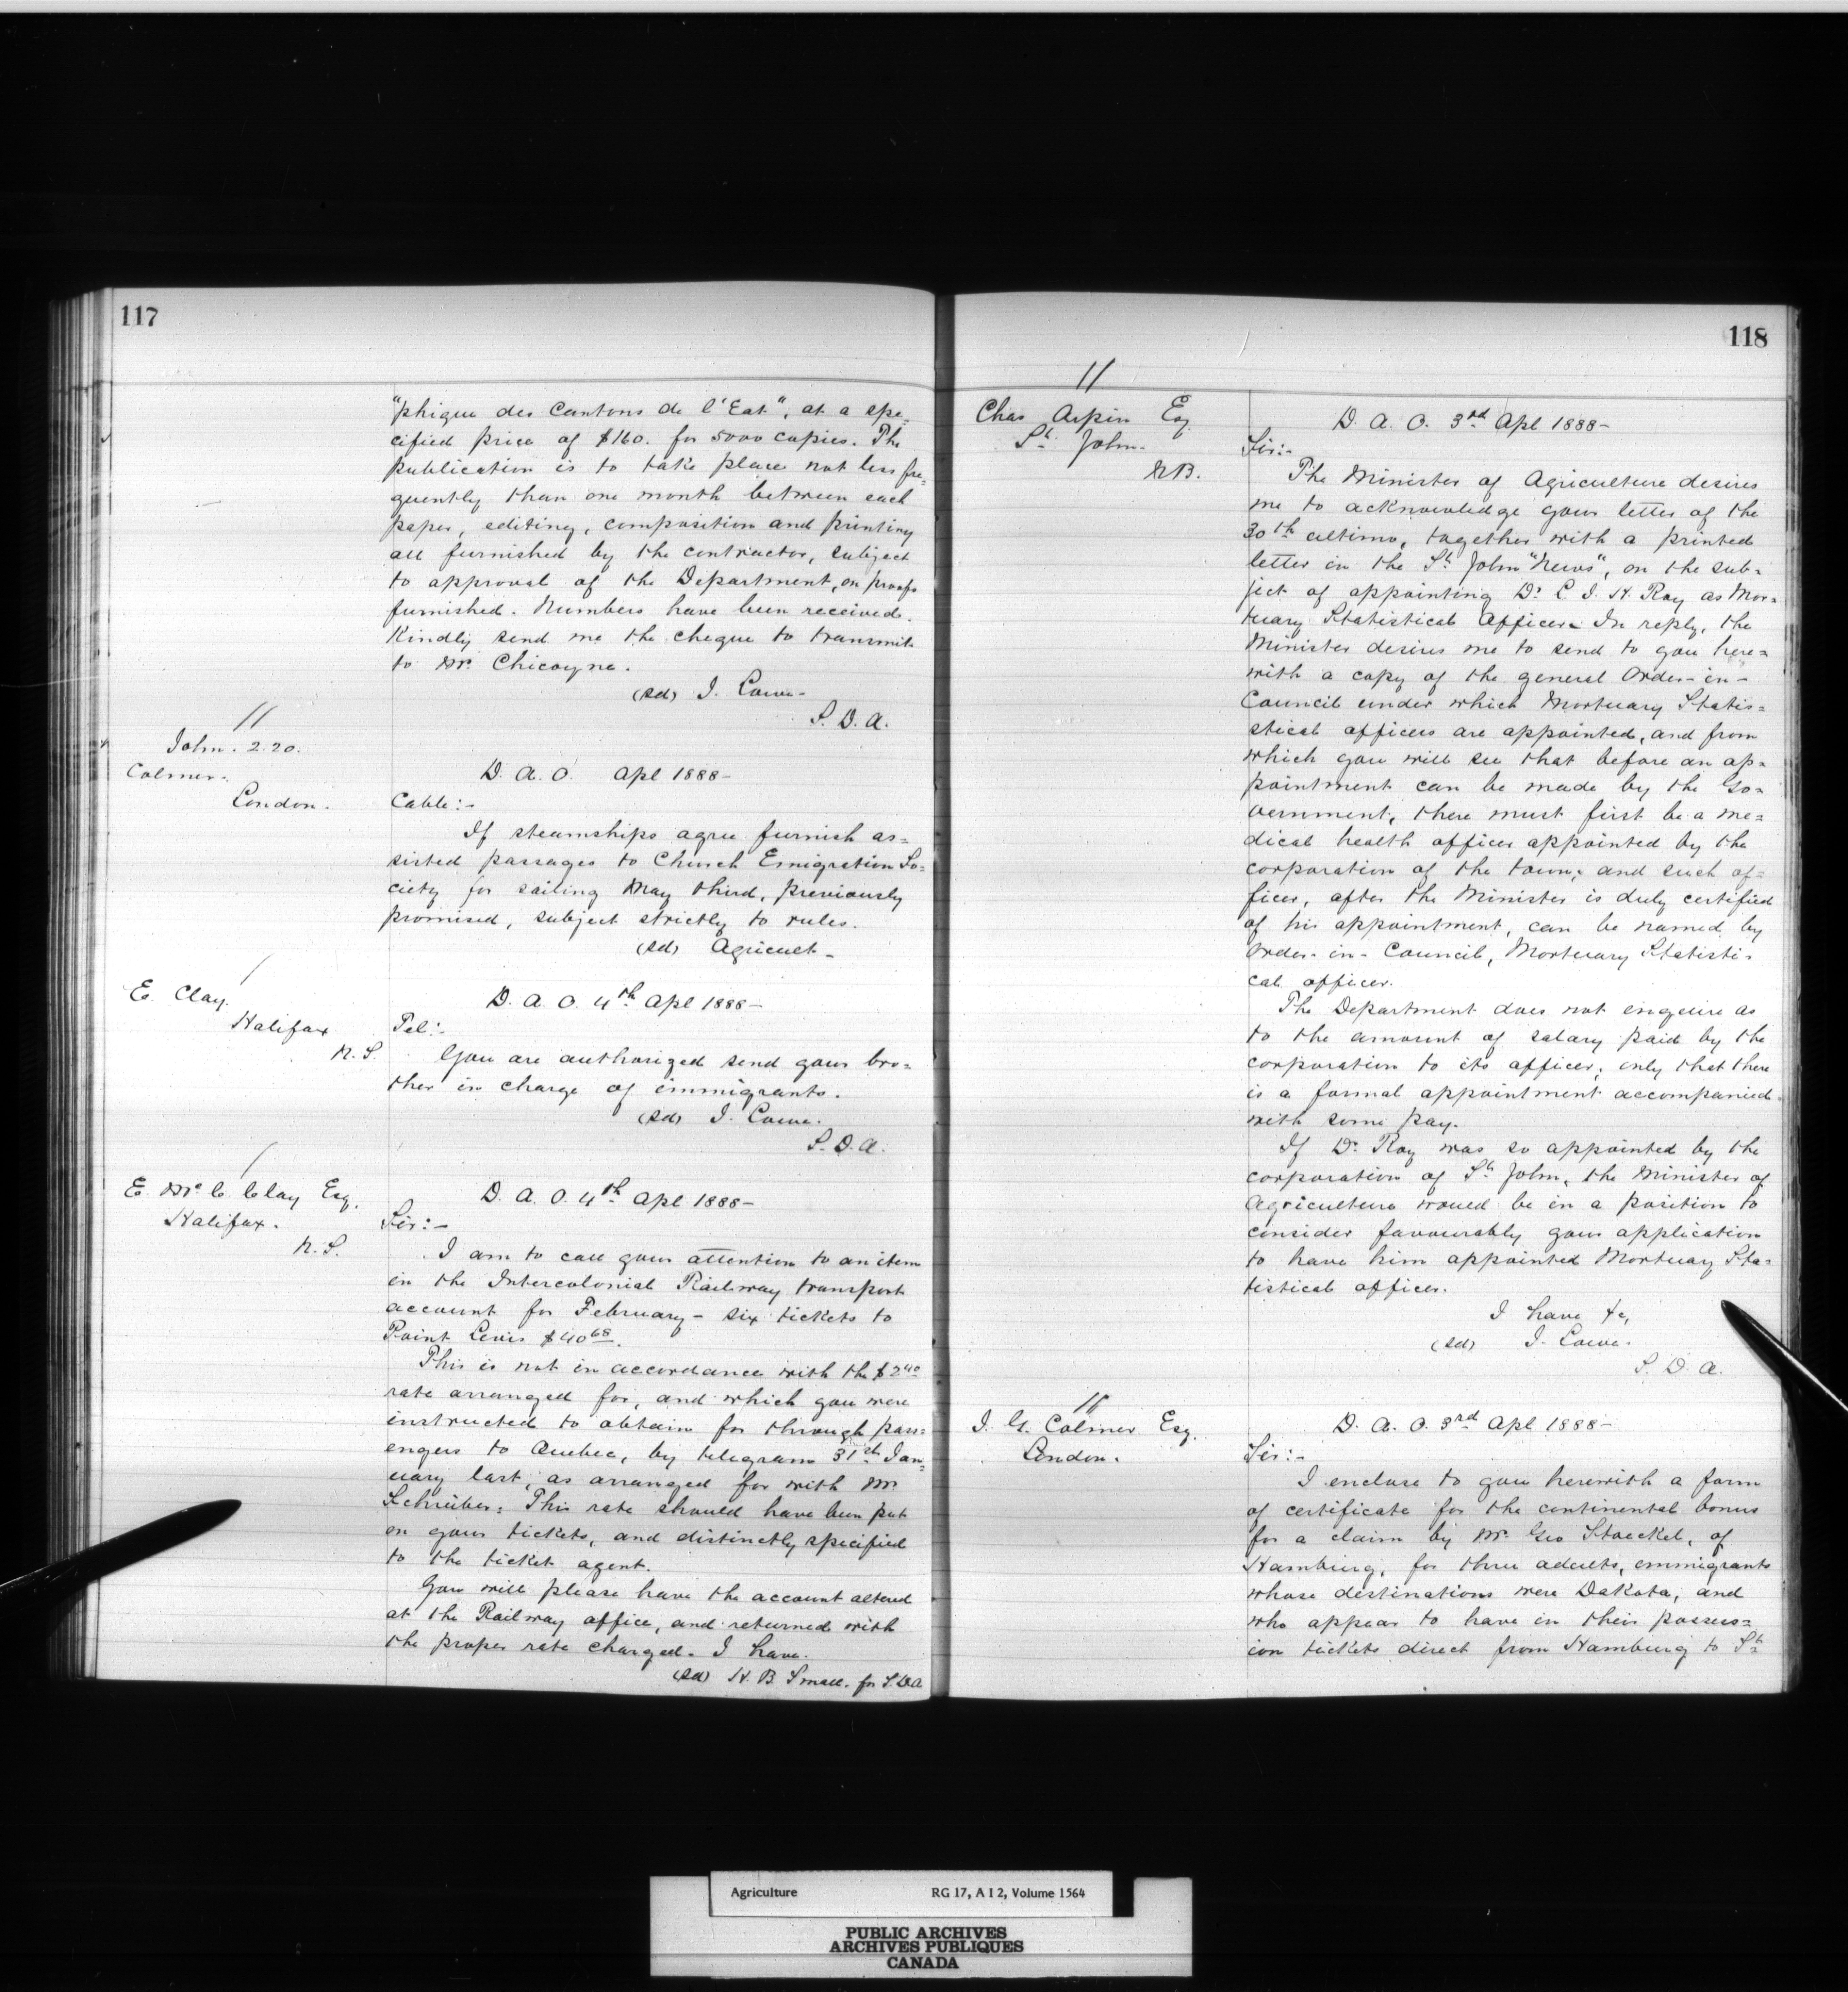 117
"phique des Cantons de l'Est", at a spe=
cified price of $160. for 5000 copies. The
publication is to take place not less fre=
quently than one month between each
paper, editing, composition and printing
all furnished by the contractor, subject
to approval of the Department, on proofs
furnished. Numbers have been received.
Kindly send me the cheque to transmit
to Mr. Chicoyne.
(sd) J. Lowe-
S. D. A.
//
John. 2.20.
Colmer.
London.
D. A. O. Apl 1888-
Cable:-
If steamships agree furnish as=
sisted passages to Church Emigration So=
ciety for sailing May third, previously
promised, subject strictly to rules.
(sd) Agricult-
/
E. Clay.
Halifax
N. S.
D. A. O. 4th Apl 1888-
Tel:-
You are authorized send your bro=
ther in charge of immigrants.
(sd) J. Lowe.
S. D. A.
/
E. McC. Clay Esq.
Halifax.
N. S.
D. A. O. 4th Apl 1888-
Sir:-
I am to call your attention to an item
in the Intercolonial Railway transport
account for February - six tickets to
Point Levis $40 68.
This is not in accordance with the $2 40
rate arranged for, and which you were
instructed to obtain for through pass=
engers to Quebec, by telegram 31st Jan=
uary last, as arranged for with Mr
Schreiber: This rate should have been put
on your tickets, and distinctly specified
to the ticket agent.
You will please have the account altered
at the Railway office, and returned with
the proper rate charged. I have.
(sd) H. B. Small. for S.D.A
118
//
Chas Arpin Esq
St. John.
N.B.
D. A. O. 3rd Apl 1888-
Sir:-
The Minister of Agriculture desires
me to acknowledge your letter of the
30th ultimo, together with a printed
letter in the St John "News", on the sub=
ject of appointing Dr. C. I. H. Roy as Mor=
tuary Statistical Officer. In reply, the
Minister desires me to send to you here=
with a copy of the general Order-in-
Council under which Mortuary Statis=
stical officers are appointed, and from
which you will see that before an ap=
pointment can be made by the Go=
vernment, there must first be a me=
dical health officer appointed by the
corporation of the town; and such of=
ficer, after the Minister is duly certified
of his appointment, can be named by
Order-in-Council, Mortuary Statisti-
cal officer.
The Department does not enquire as
to the amount of salary paid by the
corporation to its officer; only that there
is a formal appointment accompanied
with some pay.
If Dr Roy was so appointed by the
corporation of St John, the Minister of
Agriculture would be in a position to
consider favourably your application
to have him appointed Mortuary Sta=
tistical officer.
I have &c,
(sd) J. Lowe.
S. D. A.
//
J. G. Colmer Esq.
London.
D. A. O. 3rd Apl 1888-
Sir:-
I enclose to you herewith a form
of certificate for the continental bonus
for a claim by Mr. Geo Stoeckel, of
Hamburg, for three adults, emmigrants
whose destinations were Dakota; and
who appear to have in their possess=
ion tickets direct from Hamburg to St
Agriculture RG 17, A I 2, Volume 1564
PUBLIC ARCHIVES
ARCHIVES PUBLIQUES
CANADA